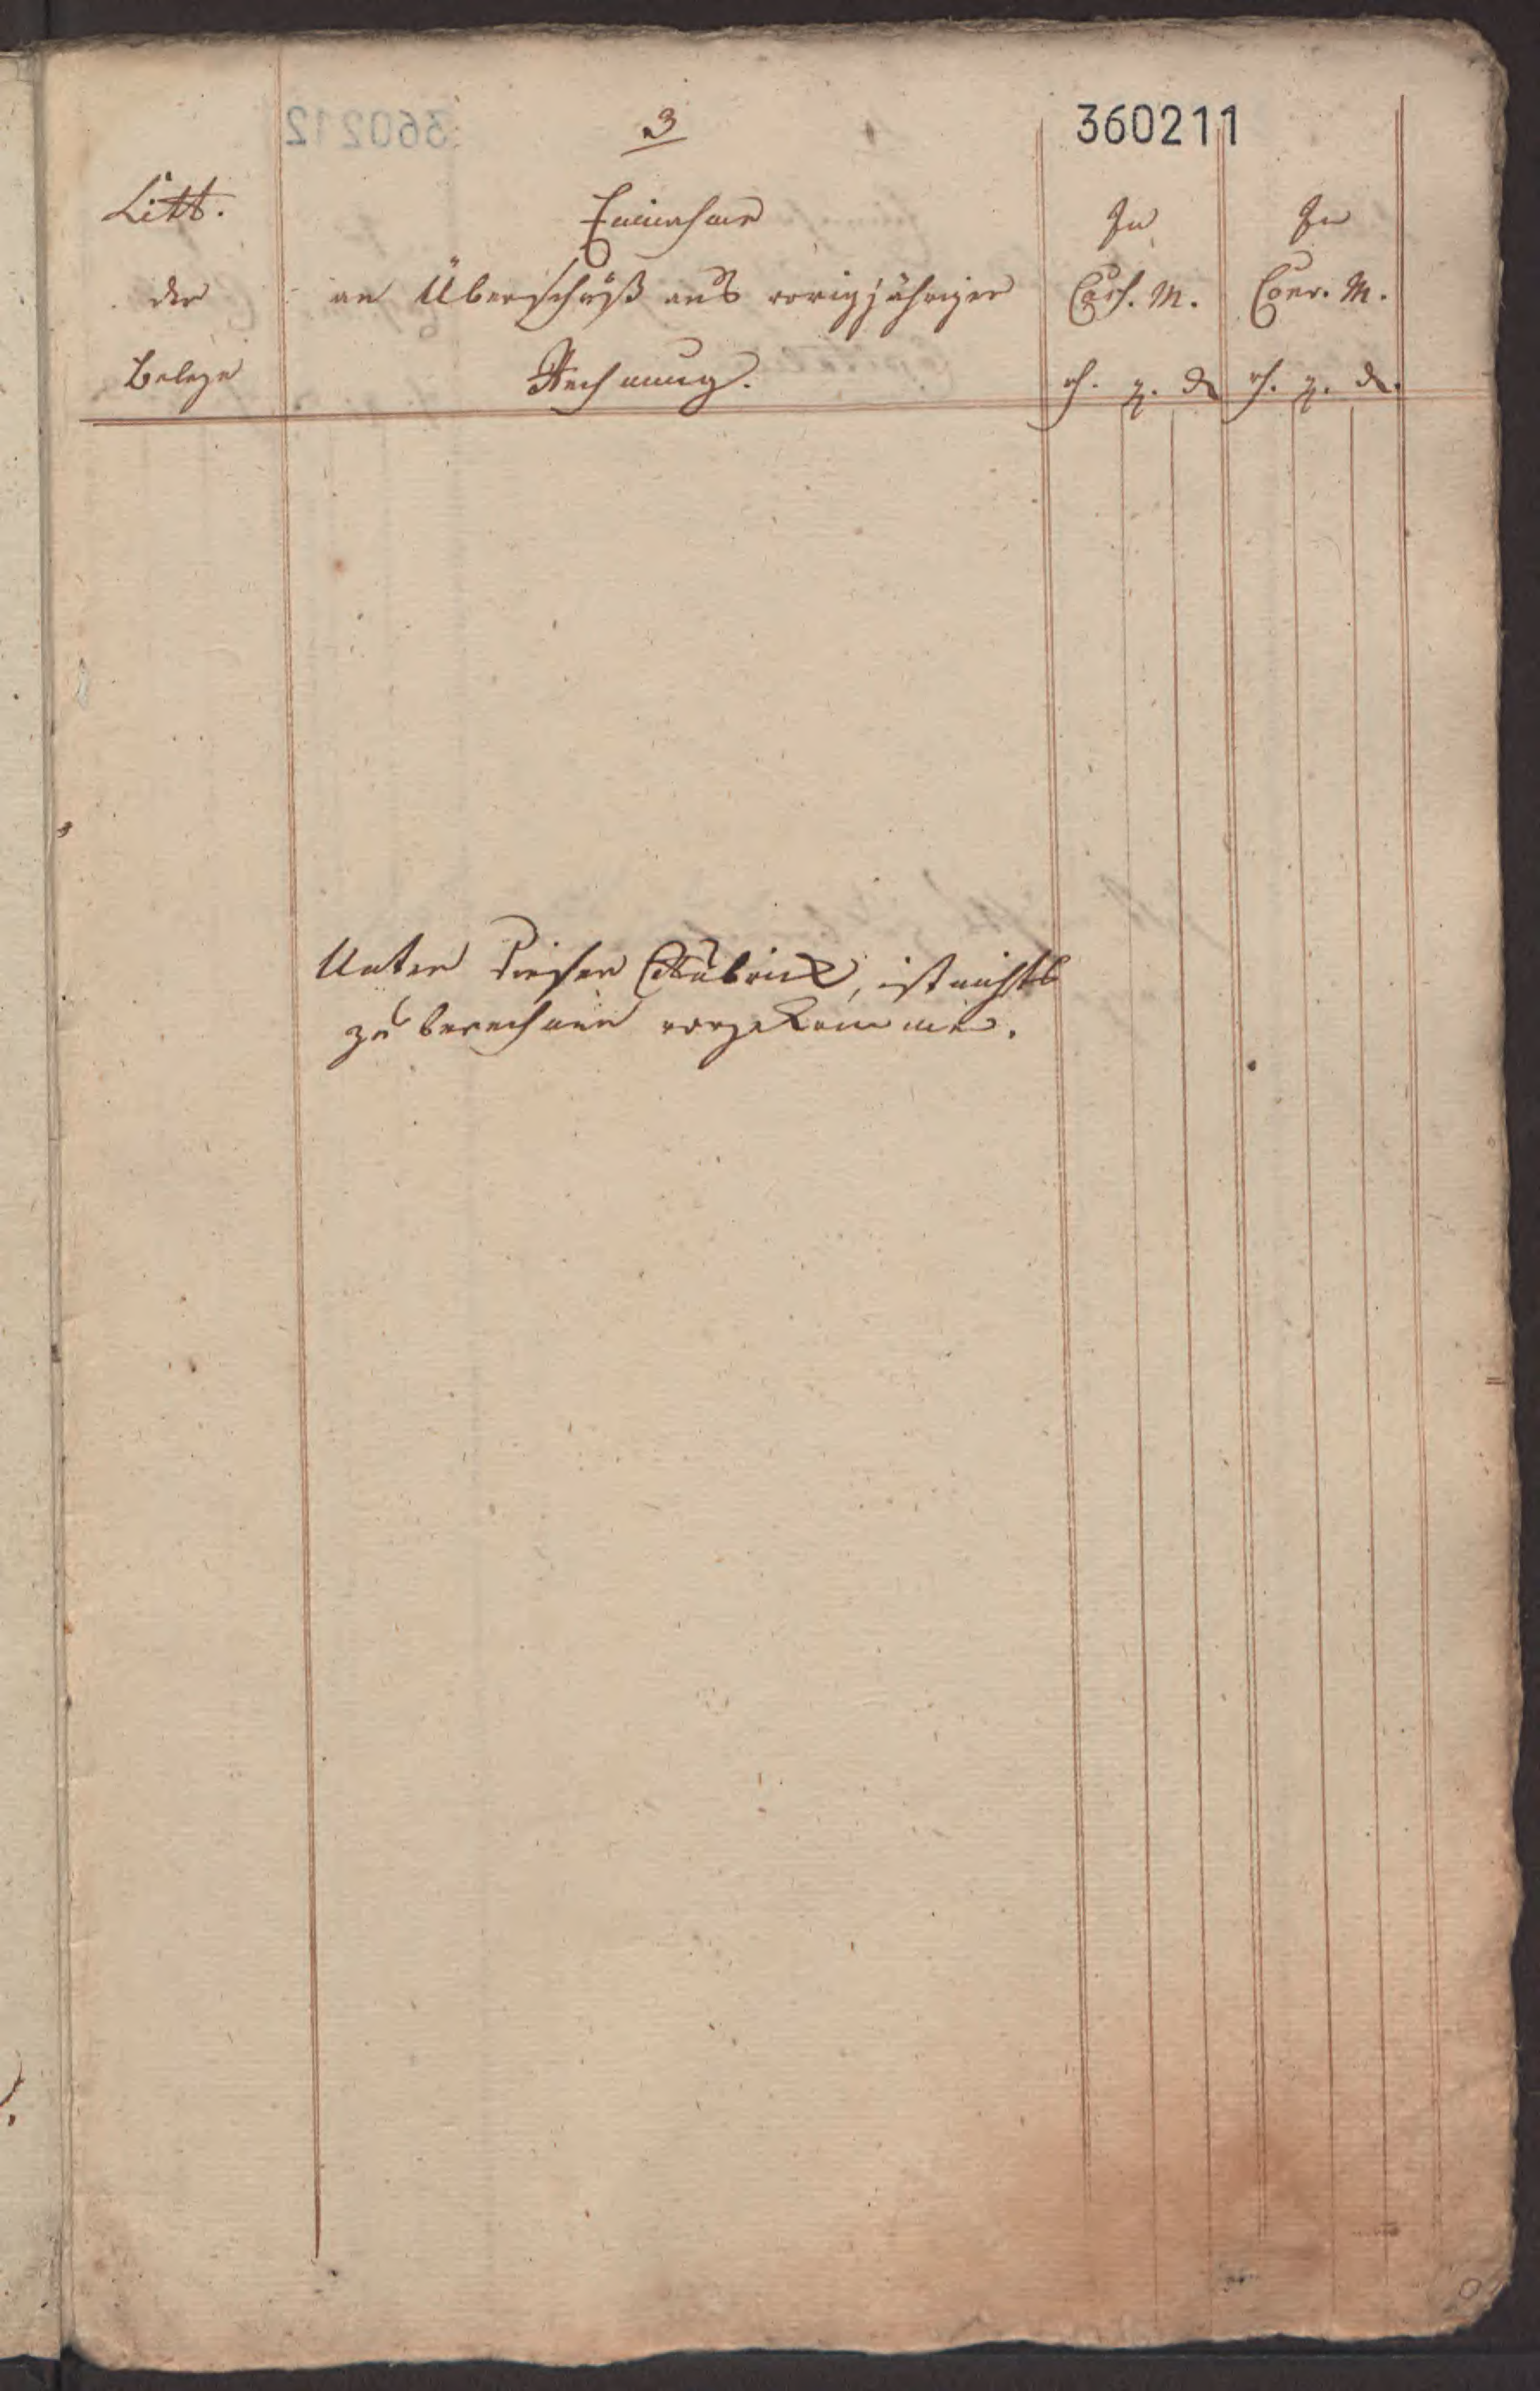 3
360211
Litt.
der
Belege
Einnahme
an Überschuß aus vorigjähriger
Rechnung.
In
Cass. M.
In
Conv. M.
rh. g. d
rh. g. d.
Unter dieser Rubrick, ist nichts
zu berechnen vorgekommen.